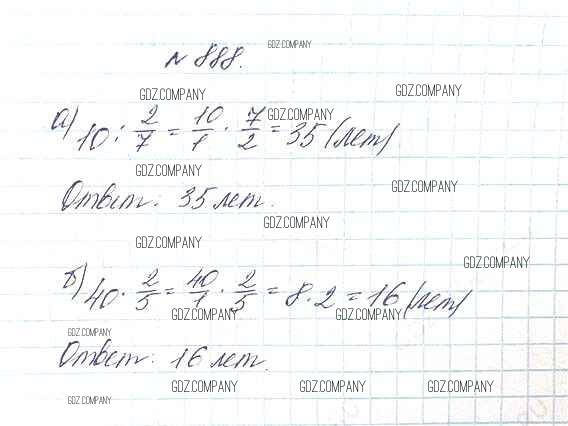 № 888.
GDZ.COMPANY
GDZ.COMPANY
GDZ.COMPANY
GDZ.COMPANY
а) 10 : 2/7 = 10/1 · 7/2 = 35 (лет)
GDZ.COMPANY
GDZ.COMPANY
Ответ: 35 лет.
GDZ.COMPANY
GDZ.COMPANY
GDZ.COMPANY
б) 40 · 2/5 = 40/1 · 2/5 = 8 · 2 = 16 (лет)
GDZ.COMPANY
GDZ.COMPANY
GDZ.COMPANY
Ответ: 16 лет.
GDZ.COMPANY
GDZ.COMPANY
GDZ.COMPANY
GDZ.COMPANY